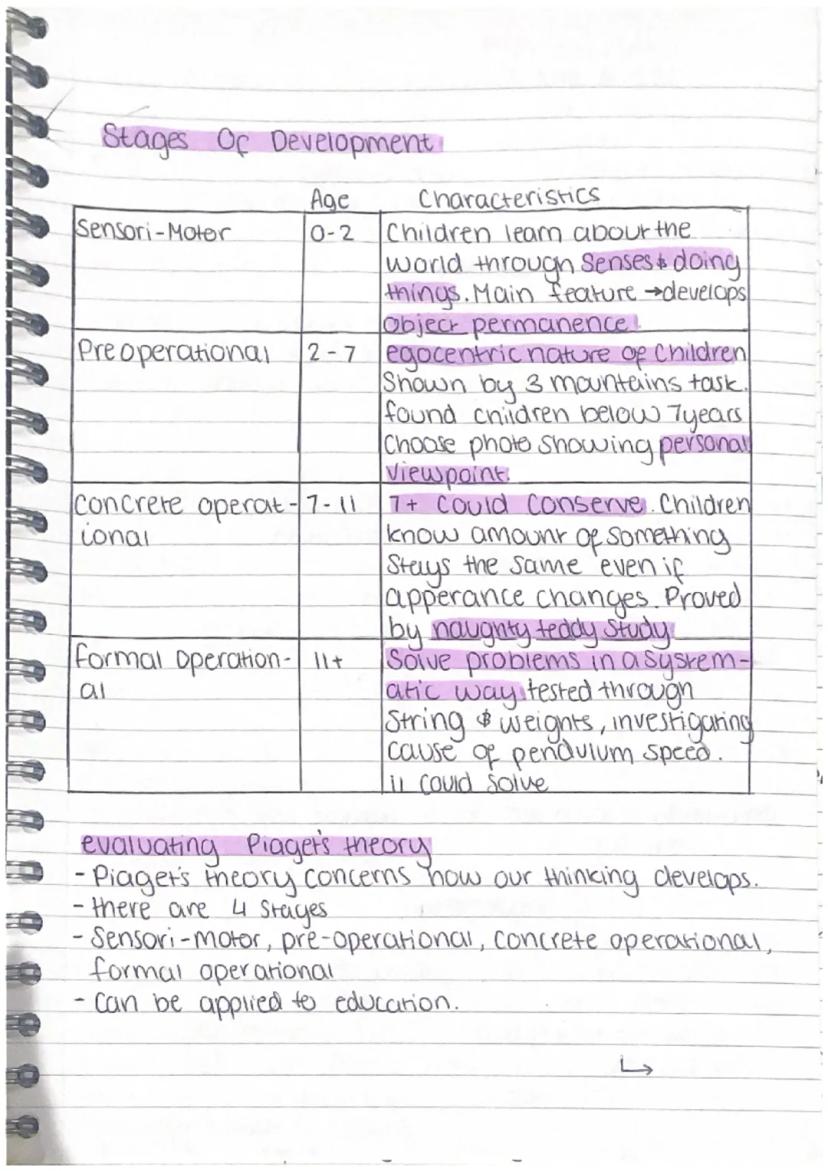 Stages Of Development
Age Characteristics
Sensori-Motor 0-2 Children learn about the
world through senses & doing
things. Main feature → develops
object permanence.
Preoperational 2-7 egocentric nature of children
Shown by 3 mountains task.
found children below 7years
Choose photo showing personal
viewpoint.
Concrete operat- 7-11 7+ Could conserve. Children
ional know amount of something
Stays the same even if
apperance changes. Proved
by naughty teddy study.
formal operation- 11+ Solve problems in a system-
al atic way tested through
String & weights, investigating
cause of pendulum speed.
11 could solve
evaluating Piaget's theory
- Piaget's theory concerns how our thinking develops.
- there are 4 stages
- Sensori-motor, pre-operational, concrete operational,
formal operational
- Can be applied to education.
↳